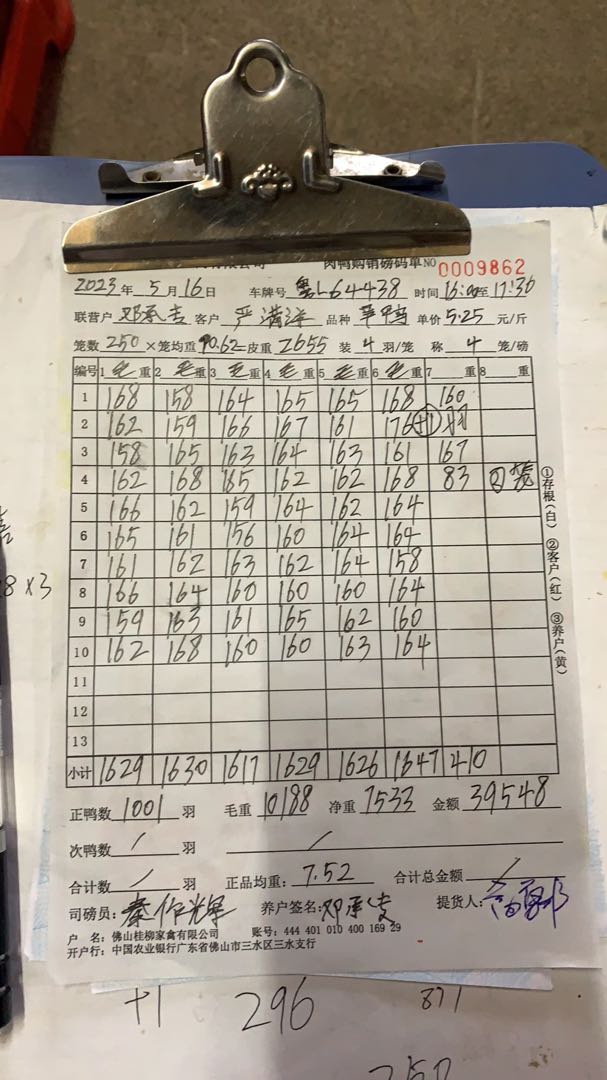 肉鸭购销磅码单NO 0009862
2023年 5月16日 车牌号 粤L64438 时间 至17:36
联营户 邓承吉 客户 严满洋 品种 单价 5.25 元/斤
笼数 250 ×笼均重 皮重 2655 装 4 羽/笼 称 4 笼/磅
编号 1 毛 重 2 毛 重 3 毛 重 4 毛 重 5 毛 重 6 毛 重 7 重 8 重
1 168 158 164 165 165 168 160
2 162 159 166 167 161 176 +1羽
3 158 165 163 164 163 161 167
4 162 168 165 162 162 168 83 ②笼
5 166 162 159 164 162 164
6 165 161 156 160 164 164
7 161 162 163 162 164 158
8 166 164 160 160 160 164
9 159 163 161 165 162 160
10 162 168 160 160 163 164
11
12
13
小计 1629 1630 1617 1629 1626 1647 410
正鸭数 1001 羽 毛重 10188 净重 7533 金额 39548
次鸭数 / 羽 /
合计数 / 羽 正品均重: 7.52 合计总金额 /
司磅员: 秦作辉 养户签名: 提货人:
户 名: 佛山桂柳家禽有限公司 账号: 444 401 010 400 169 29
开户行: 中国农业银行广东省佛山市三水区三水支行
①存根(白) ②客户(红) ③养户(黄)
8×3
+1 296 871